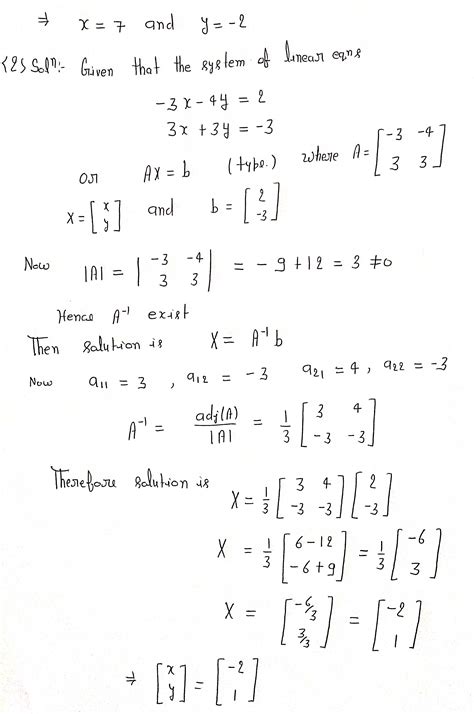 ⇒ x = 7 and y = -2
<2> Solⁿ:- Given that the system of linear eqns
-3x - 4y = 2
3x + 3y = -3
or AX = b (type.) where A = [-3 -4; 3 3]
X = [x; y] and b = [2; -3]
Now |A| = |-3 -4; 3 3| = -9 + 12 = 3 ≠ 0
Hence A⁻¹ exist
Then solution is X = A⁻¹ b
Now a₁₁ = 3 , a₁₂ = -3 a₂₁ = 4 , a₂₂ = -3
A⁻¹ = adj(A)/|A| = 1/3 [3 4; -3 -3]
Therefore solution is X = 1/3 [3 4; -3 -3] [2; -3]
X = 1/3 [6-12; -6+9] = 1/3 [-6; 3]
X = [-6/3; 3/3] = [-2; 1]
⇒ [x; y] = [-2; 1]